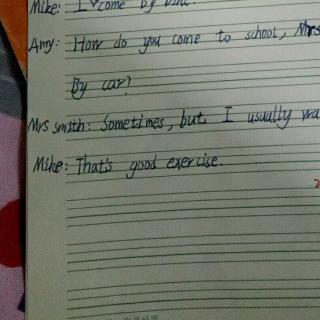 Mike: I come by
Amy: How do you come to school, Mrs
By car?
Mrs smith: Sometimes, but I usually
Mike: That's good exercise.